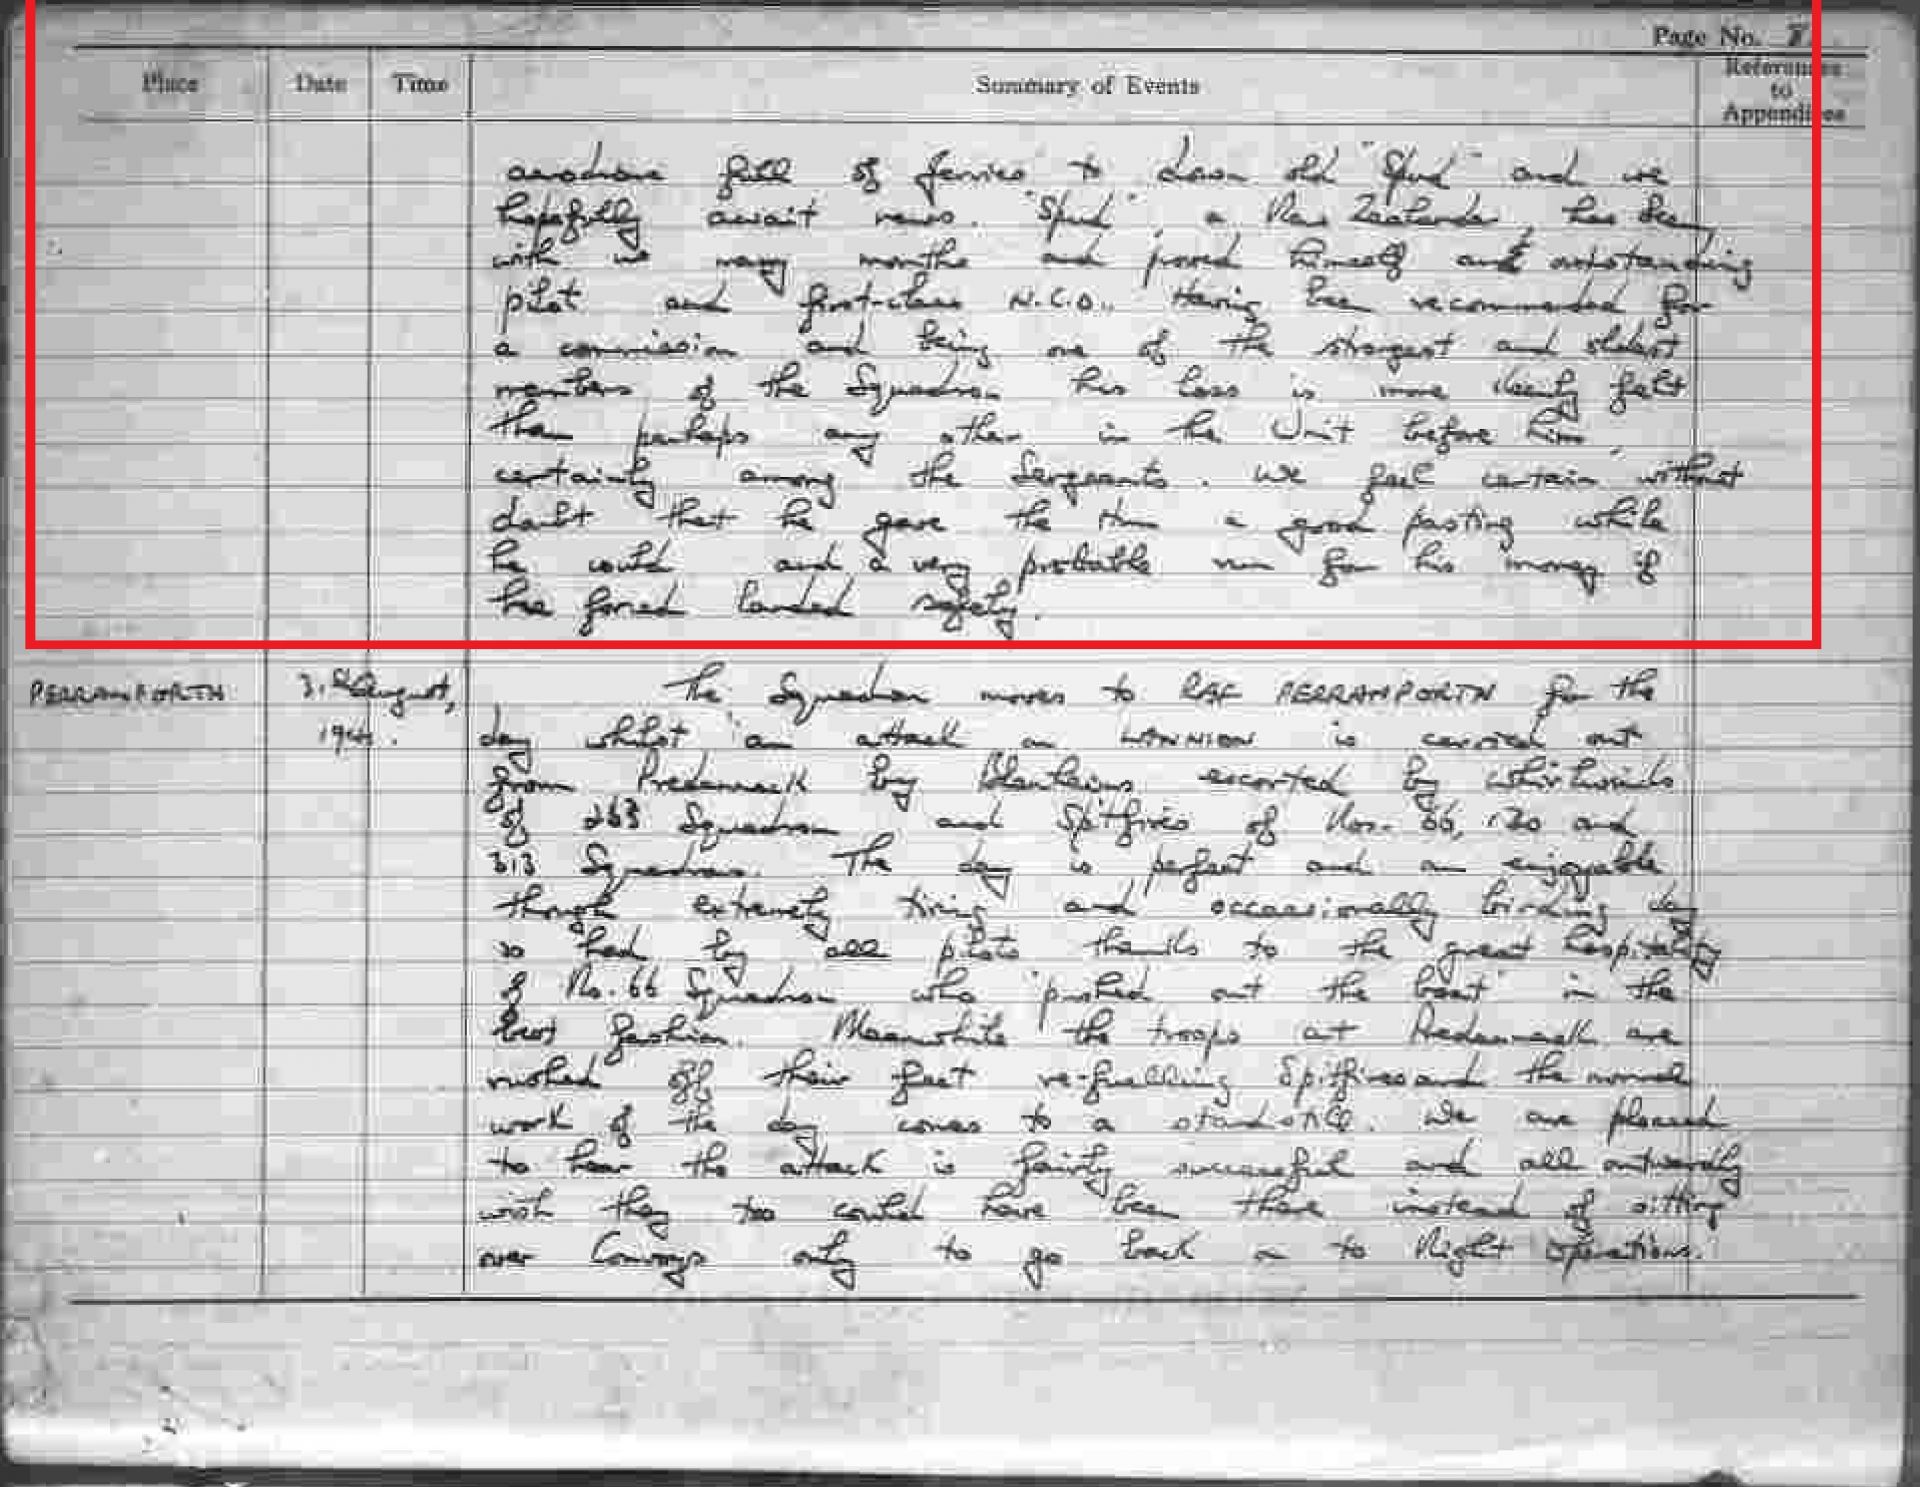 Page No.
Place Date Time Summary of Events References to Appendices
aerodrome full of Jerries to down old "Spud" and we
hopefully await news. "Spud", a New Zealander, has been
with us many months and proved himself and outstanding
pilot and first-class N.C.O.. Having been recommended for
a commission and being one of the strongest and oldest
members of the Squadron his loss is more felt
than perhaps any other in the Unit before him,
certainly among the Sergeants. We feel certain without
doubt that he gave the Hun a good pasting while
he could and a very probable run for his money if
he forced landed safely.
PERRANPORTH August, The Squadron moves to RAF PERRANPORTH for the
day whilst an attack on LANNION is carried out
from Predannack by Blenheims escorted by Whirlwinds
of 263 Squadron and Spitfires of Nos. 66, 130 and
313 Squadrons. The day is perfect and an enjoyable
though extremely tiring and occasionally binding day
is had by all pilots thanks to the great hospitality
of No. 66 Squadron who "pushed out the boat" in the
best fashion. Meanwhile the troops at Predannack are
rushed off their feet re-fuelling Spitfires and the normal
work of the day comes to a standstill. We are pleased
to hear the attack is fairly successful and all outwardly
wish they too could have been there instead of sitting
over Convoys only to go back on to Night Operations.